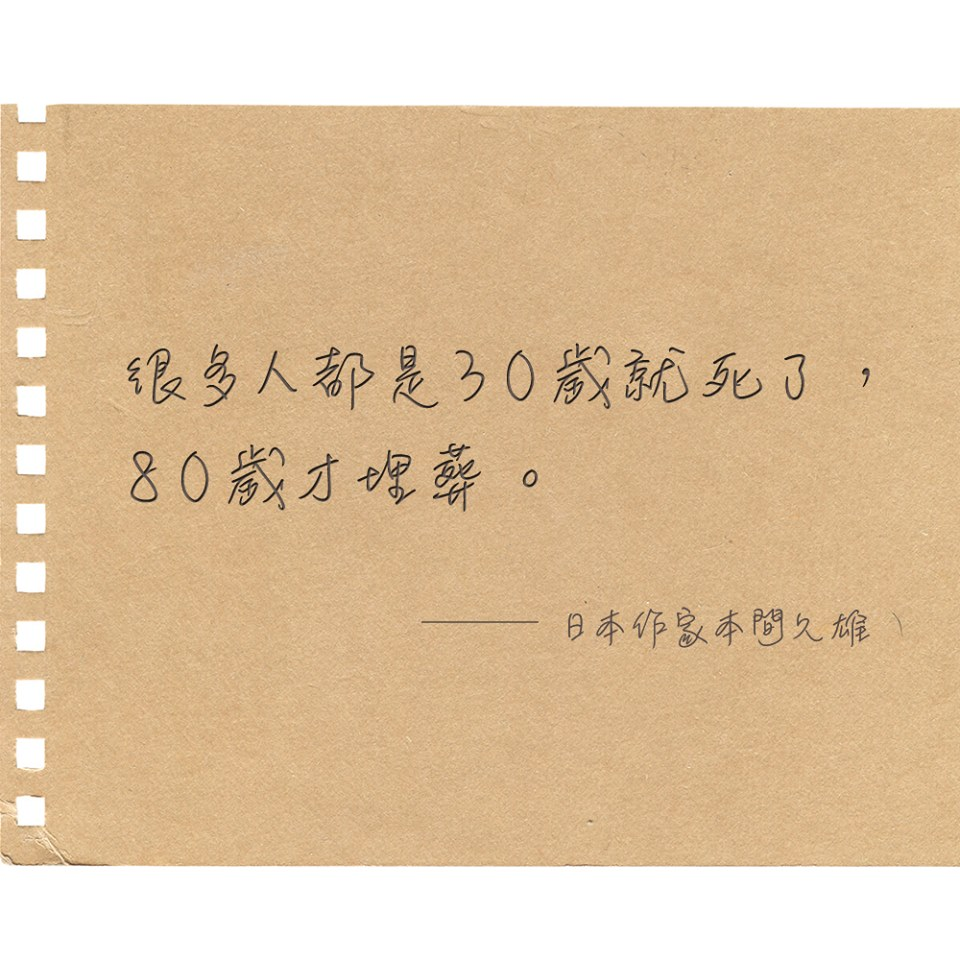 很多人都是30歲就死了，
80歲才埋葬。
——日本作家本間久雄